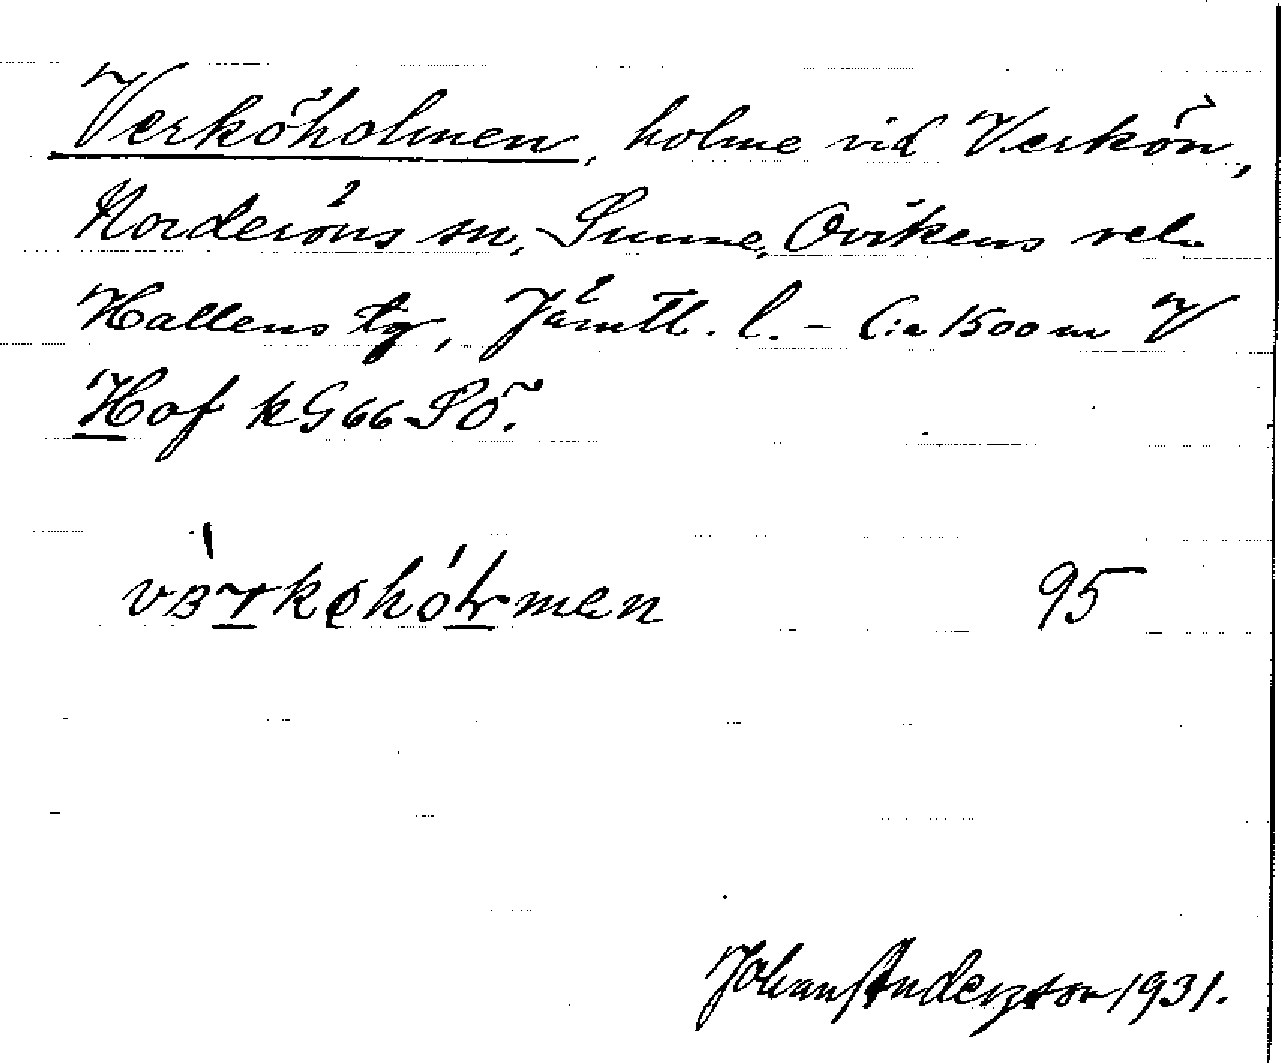 Verköholmen, holme vid Verkön,
Norderöns sn, Sunne, Ovikens
Hallens tg, Jämtl. l. – C:a 1500 m V
Hof kG66SÖ.
95
Johan Anderzson 1931.